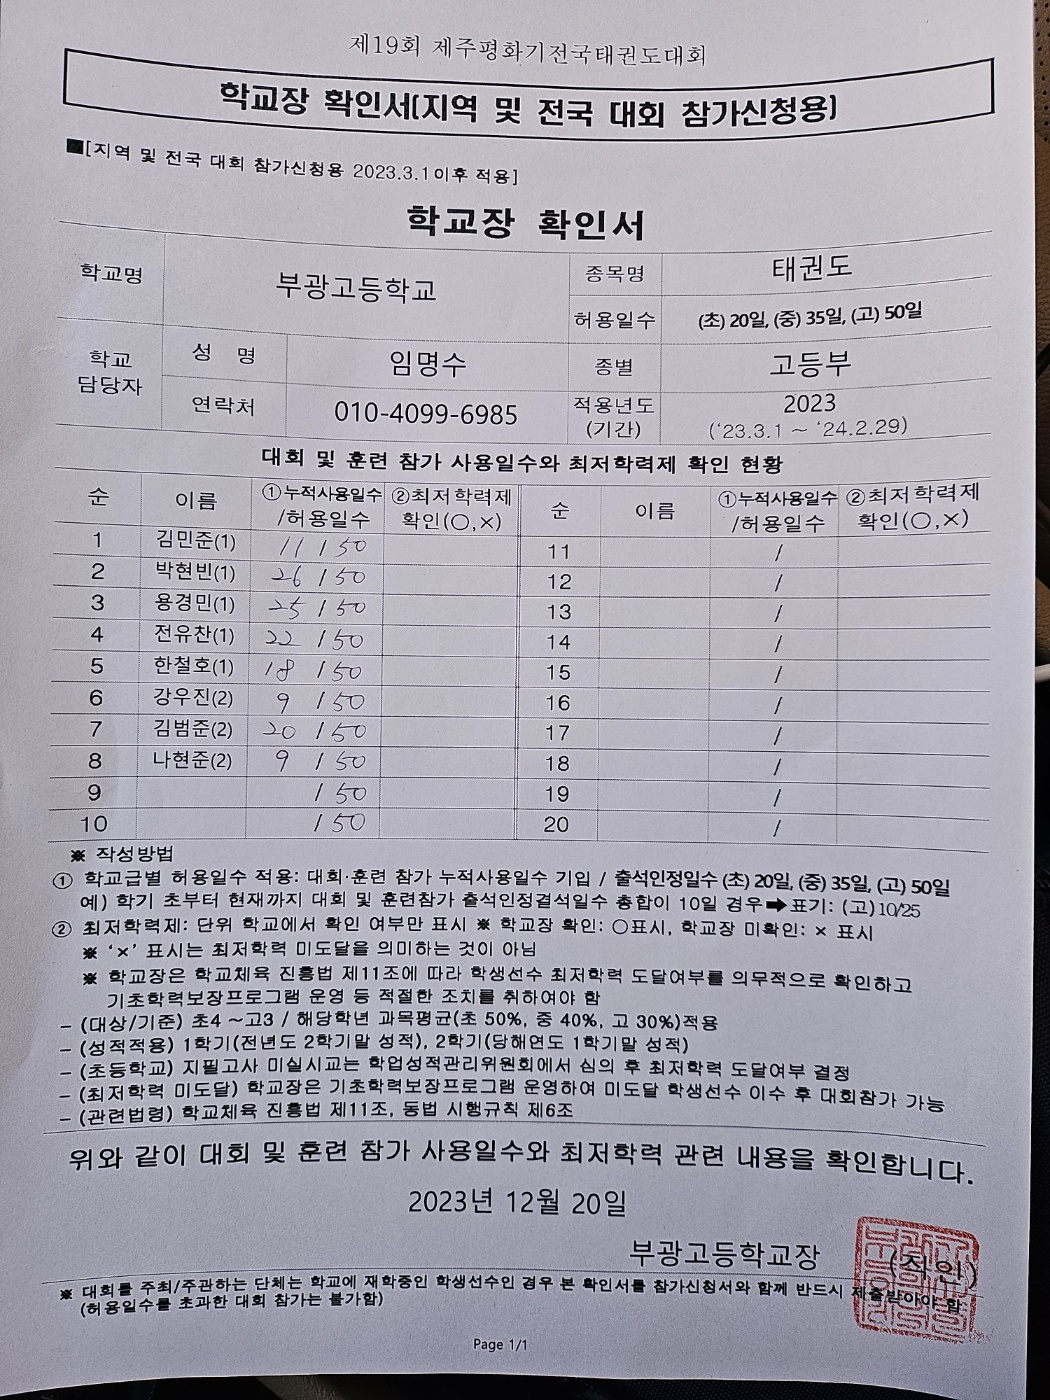 제19회 제주평화기전국태권도대회
학교장 확인서(지역 및 전국 대회 참가신청용)
■[지역 및 전국 대회 참가신청용 2023.3.1이후 적용]
학교장 확인서
학교명 부광고등학교 종목명 태권도
허용일수 (초) 20일, (중) 35일, (고) 50일
학교 담당자 성 명 임명수 종별 고등부
연락처 010-4099-6985 적용년도 (기간) 2023 (‘23.3.1 ~ ‘24.2.29)
대회 및 훈련 참가 사용일수와 최저학력제 확인 현황
순 이름 ①누적사용일수 /허용일수 ②최저학력제 확인(○,×) 순 이름 ①누적사용일수 /허용일수 ②최저학력제 확인(○,×)
1 김민준(1) 11 / 50 11 /
2 박현빈(1) 26 / 50 12 /
3 용경민(1) 25 / 50 13 /
4 전유찬(1) 22 / 50 14 /
5 한철호(1) 18 / 50 15 /
6 강우진(2) 9 / 50 16 /
7 김범준(2) 20 / 50 17 /
8 나현준(2) 9 / 50 18 /
9 / 50 19 /
10 / 50 20 /
※ 작성방법
① 학교급별 허용일수 적용: 대회·훈련 참가 누적사용일수 기입 / 출석인정일수 (초) 20일, (중) 35일, (고) 50일
예) 학기 초부터 현재까지 대회 및 훈련참가 출석인정결석일수 총합이 10일 경우➡표기: (고)10/25
② 최저학력제: 단위 학교에서 확인 여부만 표시 ※ 학교장 확인: ○표시, 학교장 미확인: × 표시
※ ‘×’ 표시는 최저학력 미도달을 의미하는 것이 아님
※ 학교장은 학교체육 진흥법 제11조에 따라 학생선수 최저학력 도달여부를 의무적으로 확인하고
기초학력보장프로그램 운영 등 적절한 조치를 취하여야 함
– (대상/기준) 초4 ~고3 / 해당학년 과목평균(초 50%, 중 40%, 고 30%)적용
– (성적적용) 1학기(전년도 2학기말 성적), 2학기(당해연도 1학기말 성적)
– (초등학교) 지필고사 미실시교는 학업성적관리위원회에서 심의 후 최저학력 도달여부 결정
– (최저학력 미도달) 학교장은 기초학력보장프로그램 운영하여 미도달 학생선수 이수 후 대회참가 가능
– (관련법령) 학교체육 진흥법 제11조, 동법 시행규칙 제6조
위와 같이 대회 및 훈련 참가 사용일수와 최저학력 관련 내용을 확인합니다.
2023년 12월 20일
부광고등학교장 (직인)
※ 대회를 주최/주관하는 단체는 학교에 재학중인 학생선수인 경우 본 확인서를 참가신청서와 함께 반드시 제출받아야 함.
(허용일수를 초과한 대회 참가는 불가함)
Page 1/1